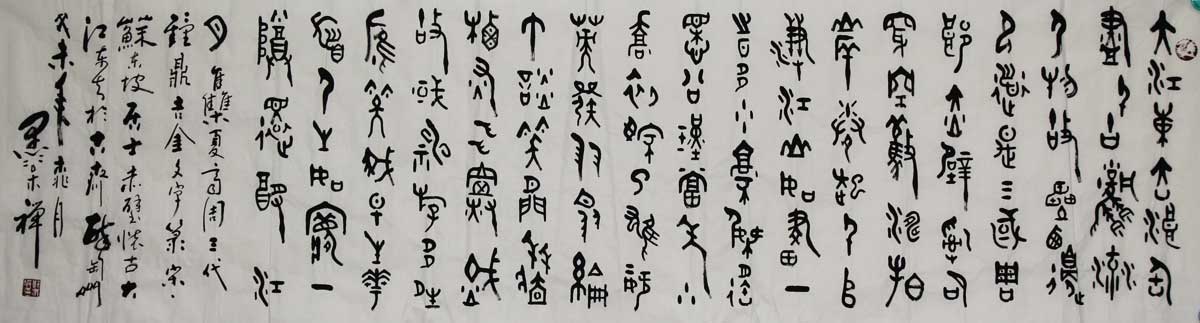 大江東去浪淘
盡千古風流
人物故壘西邊
人道是三國周
郎赤壁亂石
穿空驚濤拍
岸捲起千堆
雪江山如畫一
時多少豪傑遙
想公瑾當年小
喬初嫁了雄姿
英發羽扇綸
巾談笑間檣
櫓灰飛煙滅
故國神游多情
應笑我早生華
髮人生如夢一
尊還酹江
月 夏商周三代
鐘鼎吉金文字 宋
蘇東坡居士赤壁懷古大
江東去於
癸未年桃月
禪